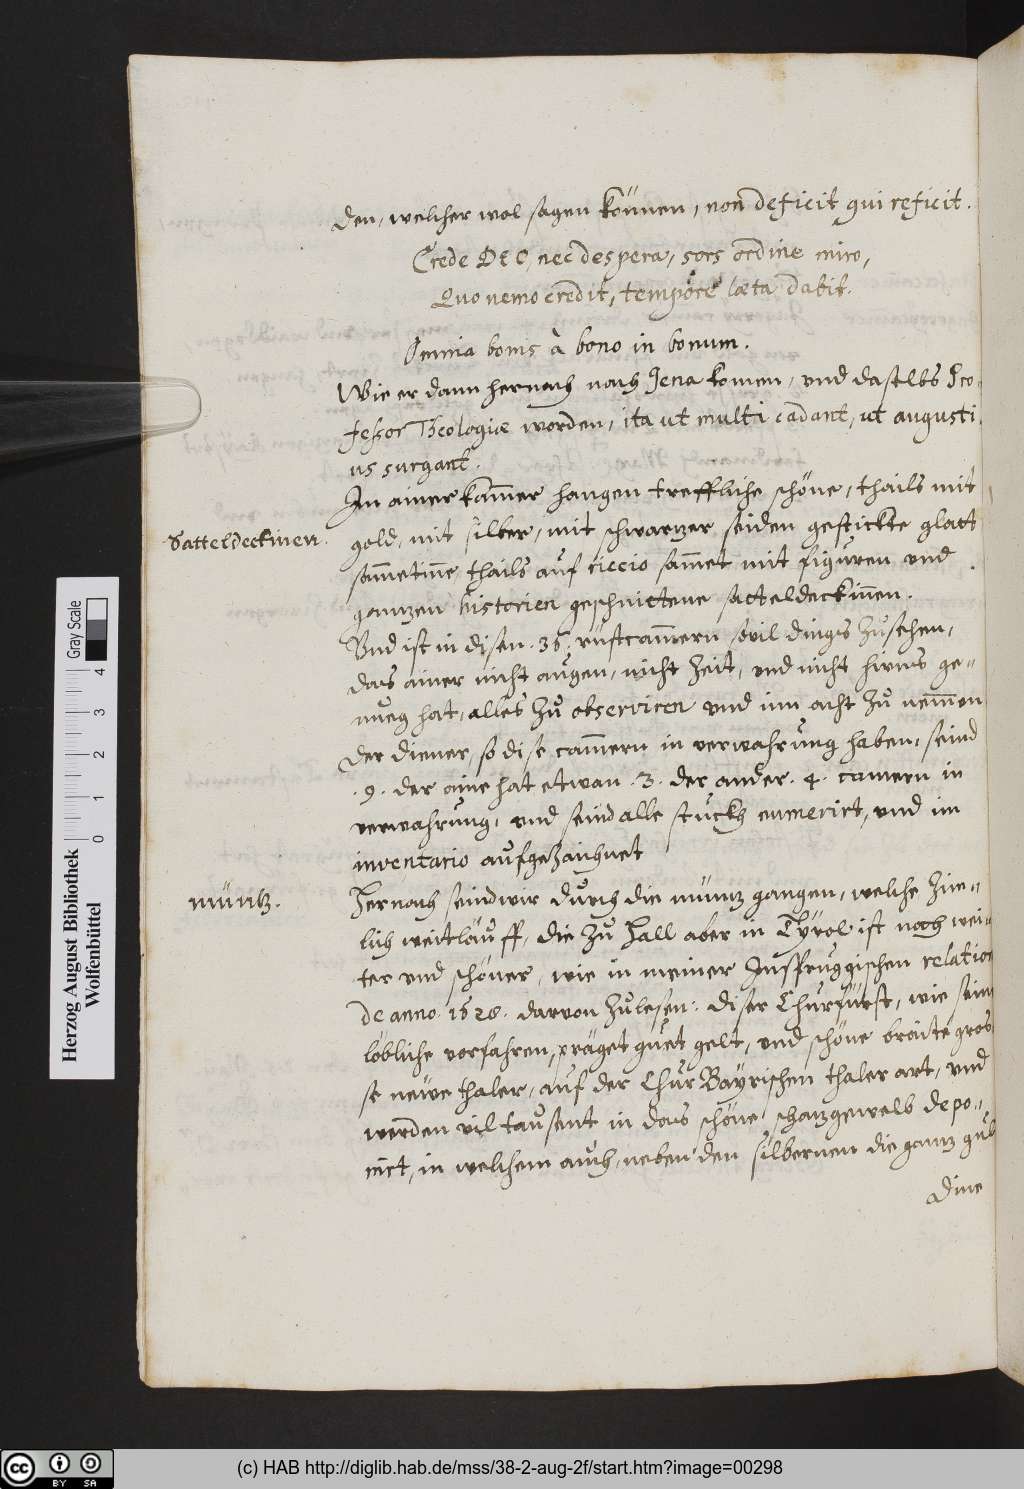 den, welcher wol sagen können, non deficit qui reficit.
Crede DEO, nec despera, sors ordine miro,
Quo nemo credit, tempore læta dabit.
Omnia bonis à bono in bonum.
Wie er dann hernach nach Jena komen, und daselbs Pro-
feßor Theologiæ worden, ita ut multi cadant, ut augusti
us surgant.
In ainer kam̄er hangen treffliche schöne, thails mit
Satteldeckinen.
gold, mit silber, mit schwarzer seiden gestickte glatt
sam̄etine, thails auf riccio sam̄et mit figuren und
ganzen historien geschnittene satteldeckin̄en.
Und ist in disen .36. rüstcam̄ern sovil dings zusehen,
das ainer nicht augen, nicht zeit, und nicht hirns ge-
nueg hat, alles zu observiren und inn acht zu nem̄en
der diener, so dise cam̄ern in verwahrung haben, seind
.9. der aine hat etwan .3. der ander .4. camern in
verwahrung, und seind alle stuckh numerirt, und im
inventario aufgezaichnet
müntz.
Hernach seind wir durch die müntz gangen, welche zim-
lich weitläuff, die zu Hall aber in Tyrol ist noch wei-
ter und schöner, wie in meiner Insspruggischen relation
de anno 1628. darvon zulesen: diser Churfürst, wie seine
löbliche vorfahren, präget guet gelt, und schöne braite gros
se newe thaler, auf der ChurBayrischen thaler art, und
werden vil tausent in das schöne schazgewelb depo-
nirt, in welchem auch, neben den silbernen die ganz gul
dine
Herzog August Bibliothek
Wolfenbüttel
0 1 2 3 4
Gray Scale
cc BY SA
(c) HAB http://diglib.hab.de/mss/38-2-aug-2f/start.htm?image=00298